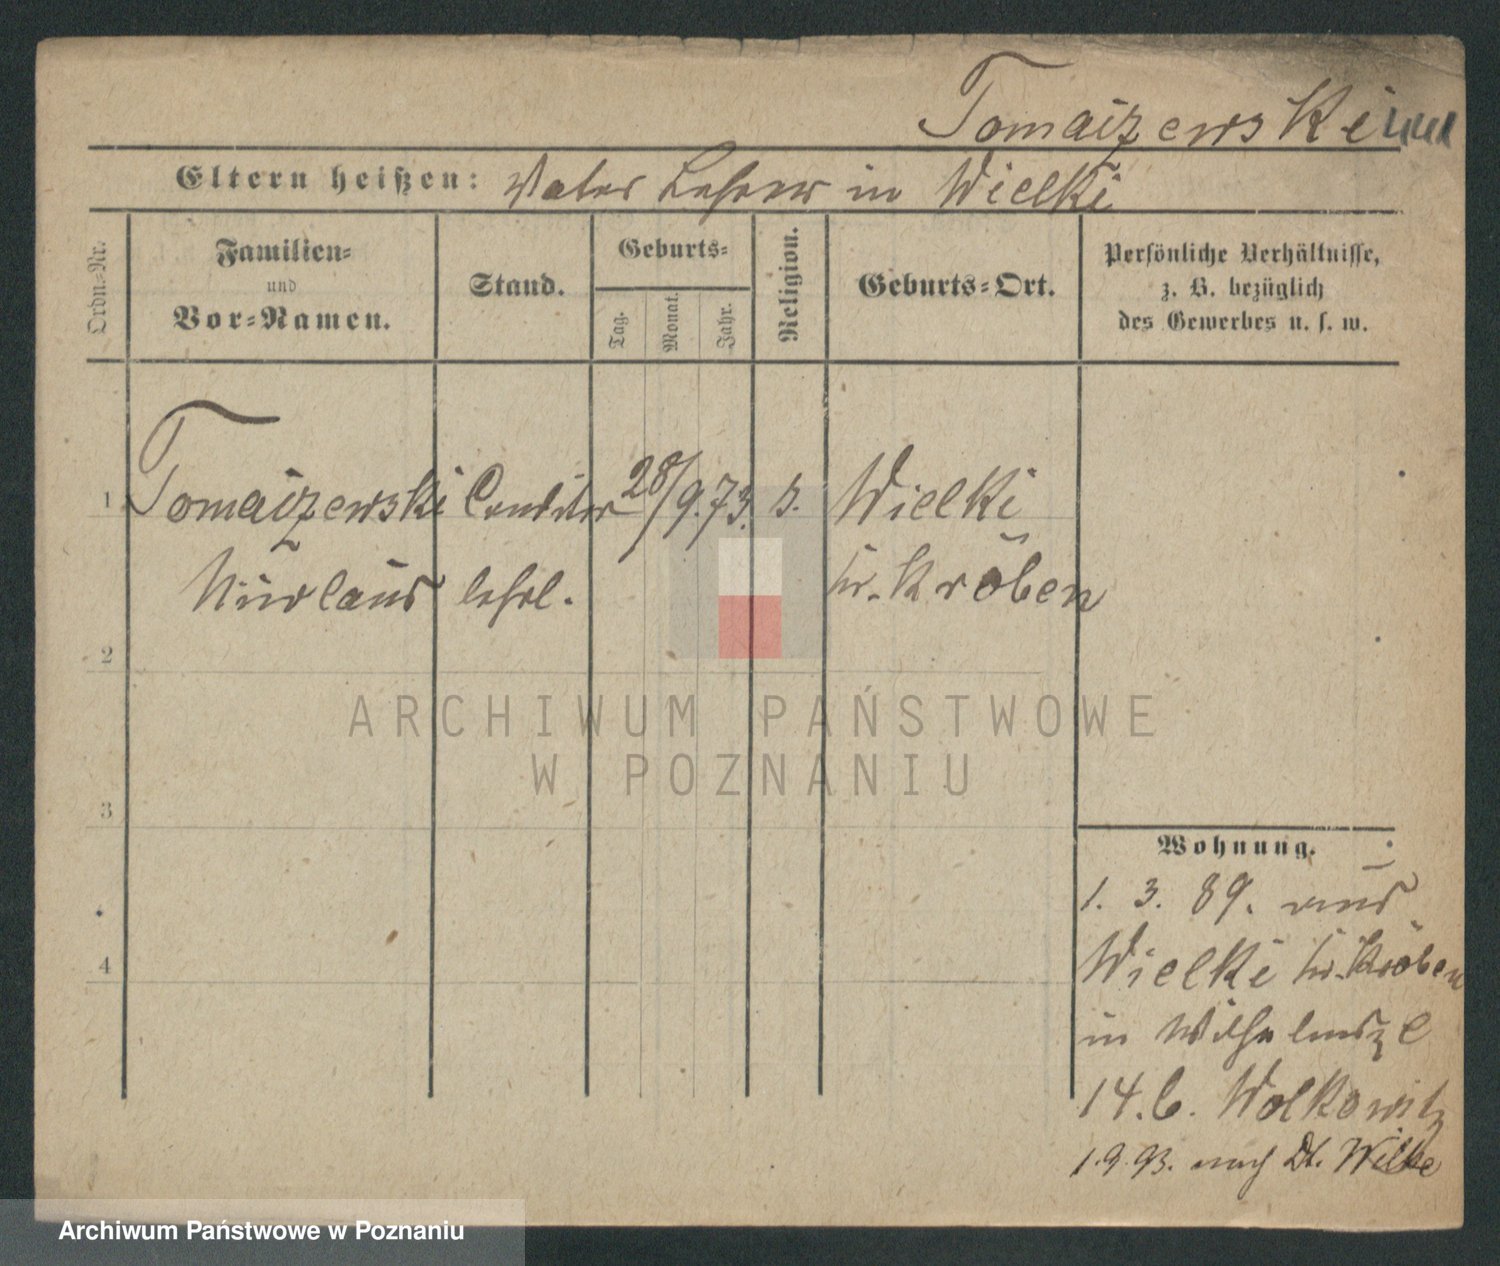 Tomaizewski
Eltern heißen: Vater Lehrer in Wielki
Ordn.-Nr.
Familien-
und
Vor-Namen.
Stand.
Geburts-
Tag.
Monat.
Jahr.
Religion.
Geburts-Ort.
Persönliche Verhältnisse,
z. B. bezüglich
des Gewerbes u. s. w.
1 Tomaizewski Conditor 28/9.73. Wielki
lehrl. Kr. Kröben
2
3
4
Wohnung.
1. 3. 89. aus
Wielki Kr. Kröben
in Wilhelmspl
14.6. Wolkowitz
1.9.93. nach Dt. Wilke
ARCHIWUM PAŃSTWOWE
W POZNANIU
Archiwum Państwowe w Poznaniu